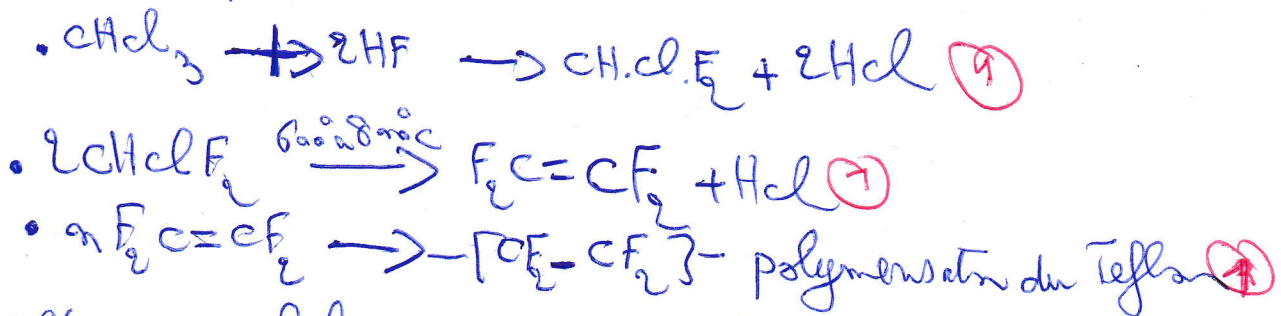 . CHCl₃ + 2HF → CH.Cl.F₂ + 2HCl ①
. 2CHClF₂ 600° à 800°C → F₂C=CF₂ + HCl ①
. nF₂C=CF₂ → -[CF₂-CF₂]- polymérisation du Teflon ①